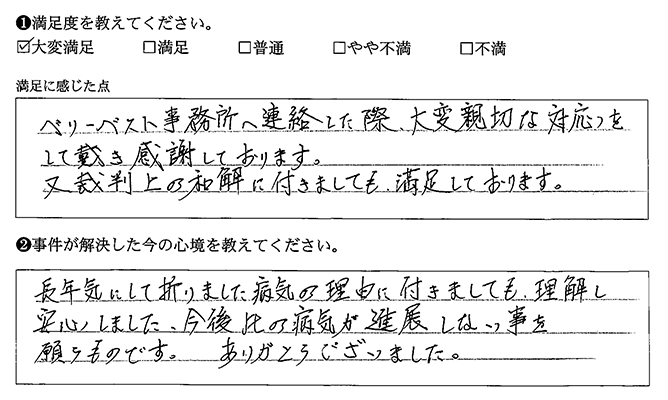 ❶満足度を教えてください。
☑大変満足 □満足 □普通 □やや不満 □不満
満足に感じた点
ベリーベスト事務所へ連絡した際、大変親切な対応を
して戴き感謝しております。
又裁判上の和解に付きましても、満足しております。
❷事件が解決した今の心境を教えてください。
長年気にして折りました病気の理由に付きましても、理解し
安心しました、今後此の病気が進展しない事を
願うものです。 ありがとうございました。